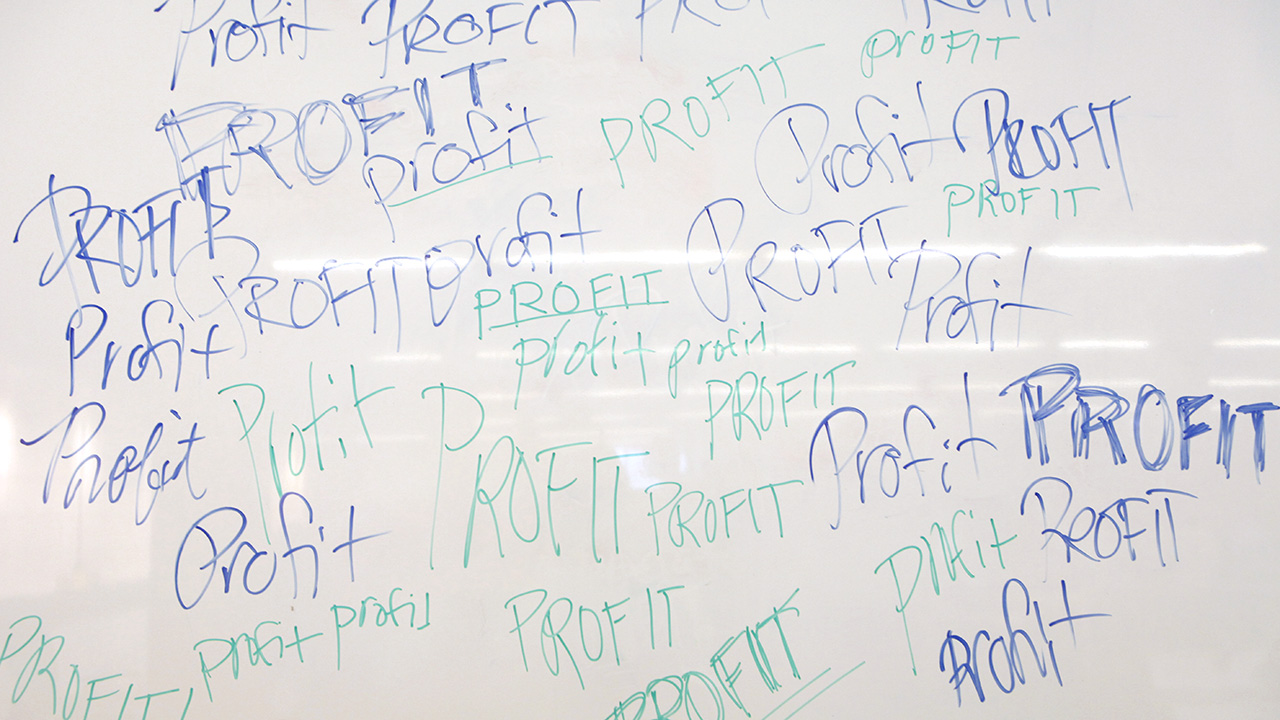 Profit PROFIT
profit
PROFIT PROFIT
profit Profit PROFIT
PROFIT PROFIT
PROFIT profit PROFIT
PROFIT Profit
Profit profit profit
Profit PROFIT PROFIT
Profit PROFIT Profit PROFIT
Profit PROFIT
Profit profit PROFIT
PROFIT profit profit PROFIT profit
PROFIT